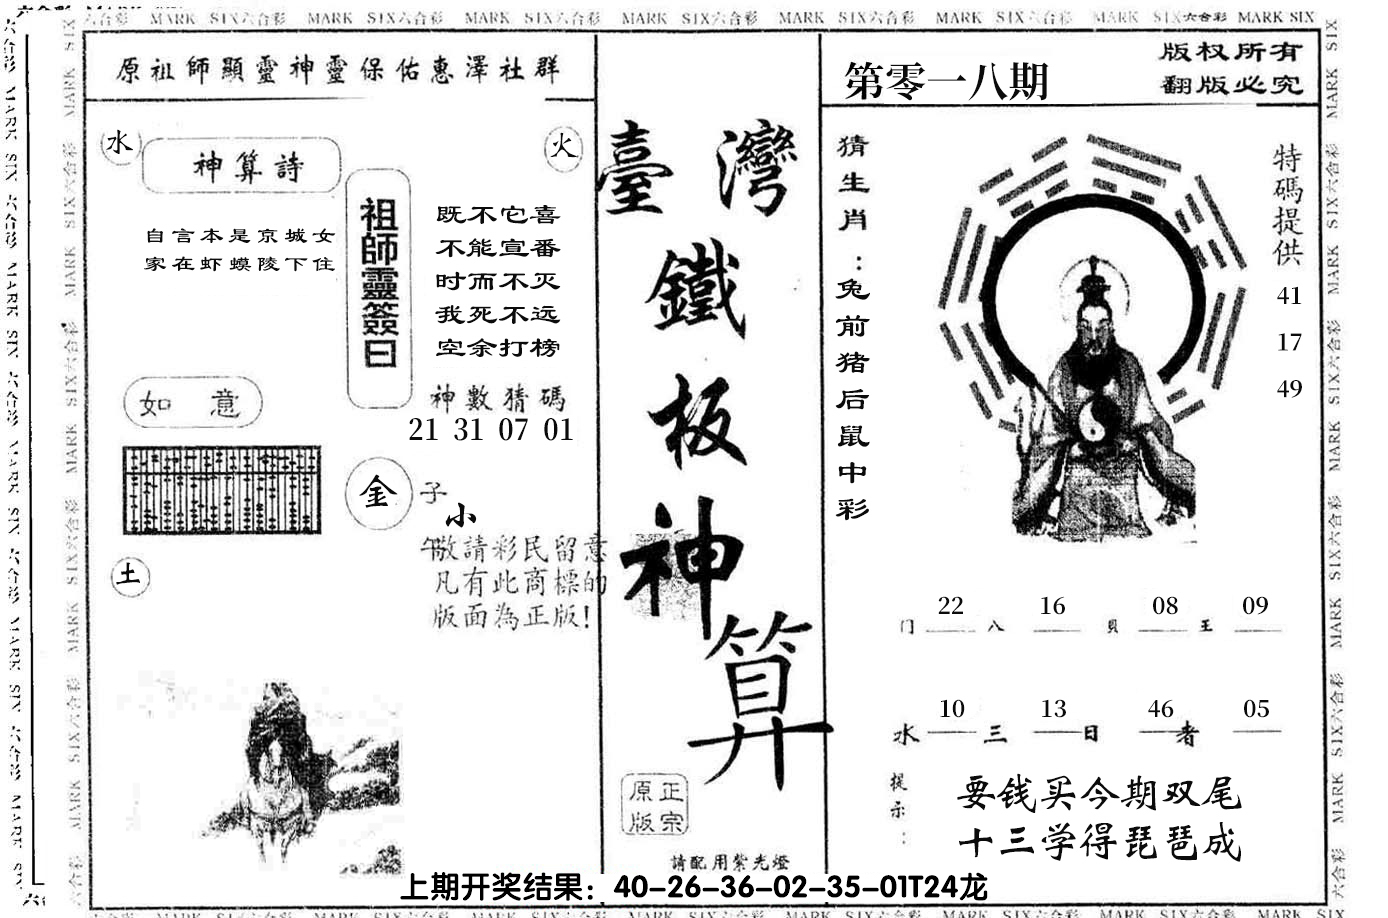 六合彩 MARK SIX六合彩 MARK SIX六合彩 MARK SIX六合彩 MARK SIX六合彩 MARK SIX六合彩 MARK SIX六合彩 MARK SIX六合彩 MARK SIX
原祖師顯靈神靈保佑惠澤社群
水
火
神算詩
自言本是京城女
家在虾蟆陵下住
祖師靈簽曰
既不它喜
不能宣番
时而不灭
我死不远
空余打榜
神數猜碼
21 31 07 01
如 意
金
子
小
午
敬請彩民留意
凡有此商標的
版面為正版!
土
臺灣
鐵
板
神
算
正宗
原版
請配用紫光燈
第零一八期
版权所有
翻版必究
猜生肖:兔前猪后鼠中彩
特碼提供
41
17
49
22 16 08 09
门 八 貝 王
10 13 46 05
水 三 日 者
提示:
要钱买今期双尾
十三学得琵琶成
上期开奖结果：40-26-36-02-35-01T24龙